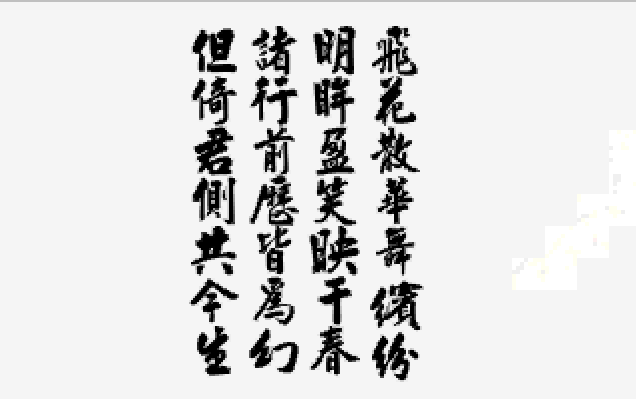 飛花散華舞繽紛
明眸盈笑映千春
諸行前歷皆為幻
但倚君側共今生